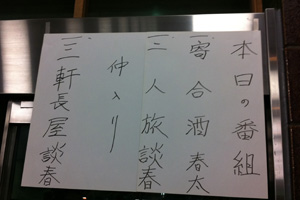 本日の番組
一、寄合酒 春太
一、三人旅 談春
仲入り
一、三軒長屋 談春